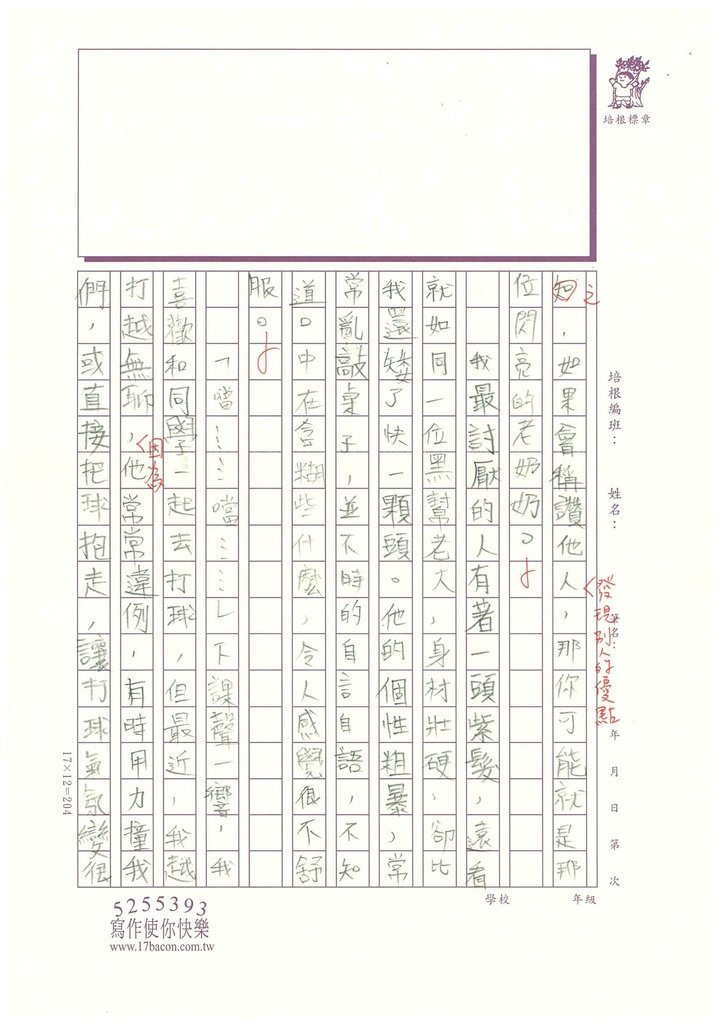 培根標章
培根編班：
姓名：
筆名：
年 月 日 第 次
年級
學校
之
發現別人的優點
，如果會稱讚他人，那你可能就是那
位閃亮的老奶奶。
我最討厭的人有著一頭紫髮，遠看
就如同一位黑幫老大，身材壯硬，卻比
我還矮了快一顆頭。他的個性粗暴，常
常亂敲桌子，並不時的自言自語，不知
道口中在含糊些什麼，令人感覺很不舒
服。
「噹……噹……」下課聲一響，我
喜歡和同學一起去打球，但最近，我越
打越無聊，他常常違例，有時用力撞我
因為
們，或直接把球抱走，讓打球氣氛變很
17×12=204
5255393
寫作使你快樂
www.17bacon.com.tw